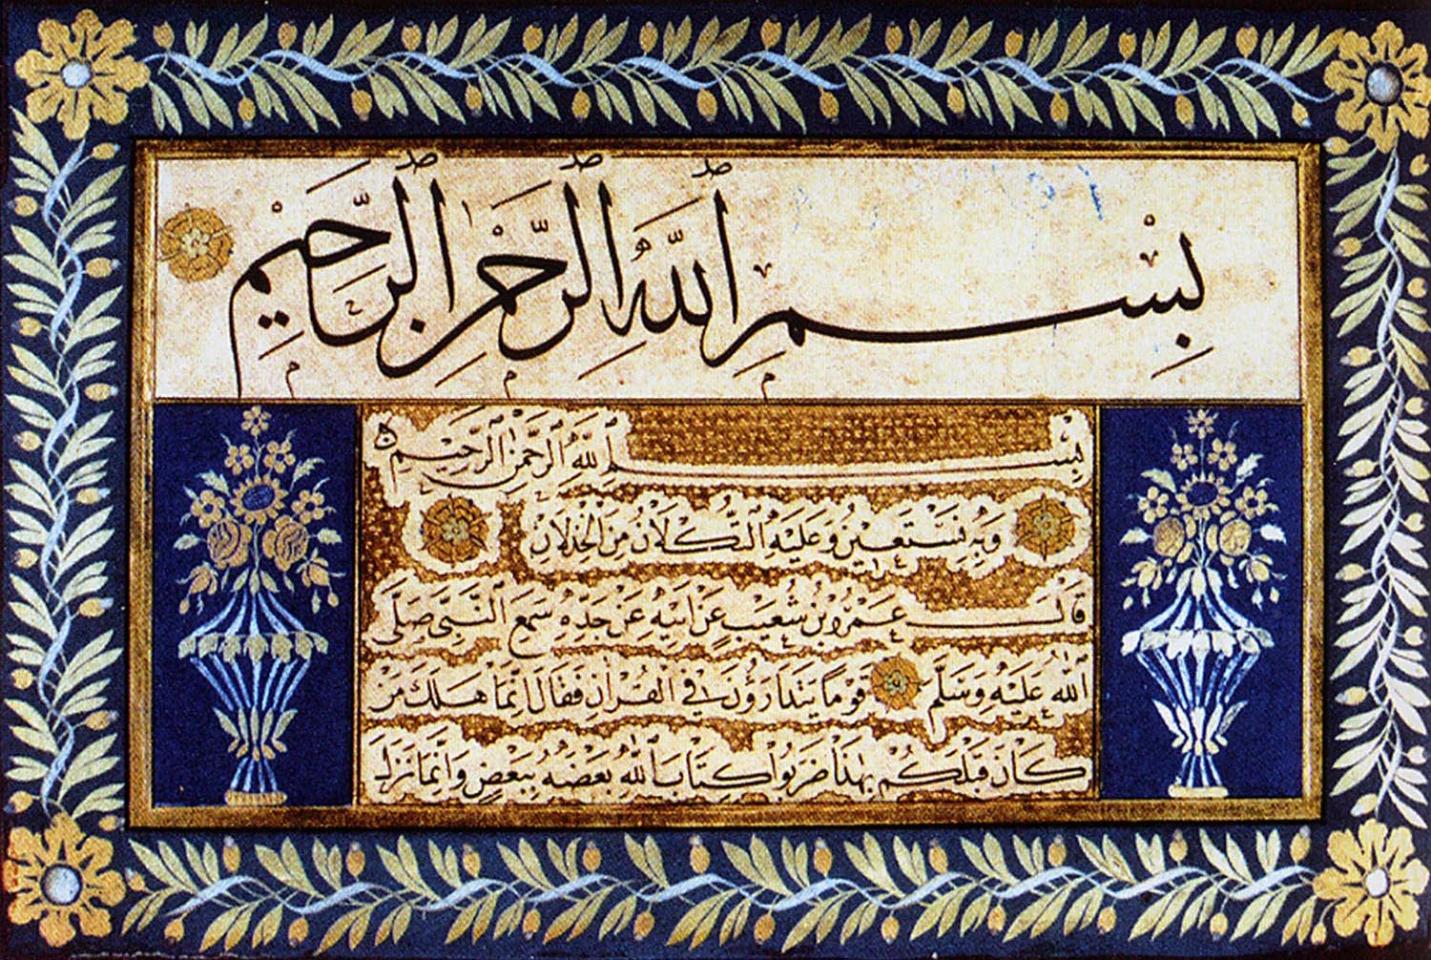 بِسْمِ اللّٰهِ الرَّحْمٰنِ الرَّحِيمِ
بسم الله الرحمن الرحيم
وَبِهِ نَسْتَعِينُ وَعَلَيْهِ التُّكْلَانُ مِنَ الْخِذْلَانِ
قَالَ عَمْرُو بْنُ شُعَيْبٍ عَنْ اَبِيهِ عَنْ جَدِّهِ سَمِعَ النَّبِىَّ صَلَّى
اللّٰهُ عَلَيْهِ وَسَلَّمَ قَوْمًا يَتَدَارَؤُنَ فِى الْقُرْاٰنِ فَقَالَ اِنَّمَا هَلَكَ مَنْ
كَانَ قَبْلَكُمْ بِهٰذَا ضَرَبُوا كِتَابَ اللّٰهِ بَعْضَهُ بِبَعْضٍ وَاِنَّمَا نَزَلَ